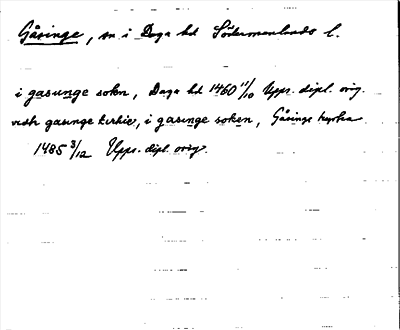 Gåsinge, sn. i Daga hd Södermanlands l.
i gasunge sokn, Daga hd 1460 11/10 Upps. dipl. orig.
vidh gasunge kirkio, i gasunge soken, Gåsinge kyrka
1485 3/12 Upps. dipl. orig.